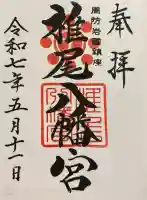 奉拝
周防岩国鎮座
椎尾八幡宮
令和七年五月十一日